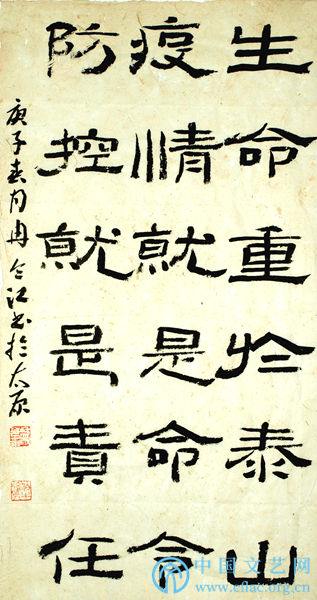 生命重於泰山
疫情就是命令
防控就是責任
庚子春月冉令江书於太原
中国文艺网
www.cflac.org.cn